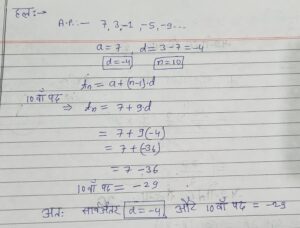 हल:→
A.P.:- 7, 3, -1, -5, -9...
a = 7 d = 3-7 = -4
d = -4 n = 10
tn = a+(n-1)·d
10वाँ पद
⇒ tn = 7 + 9·d
= 7 + 9(-4)
= 7 + (-36)
= 7 - 36
10वाँ पद = -29
अतः सार्वअंतर d = -4 और 10वाँ पद = -29